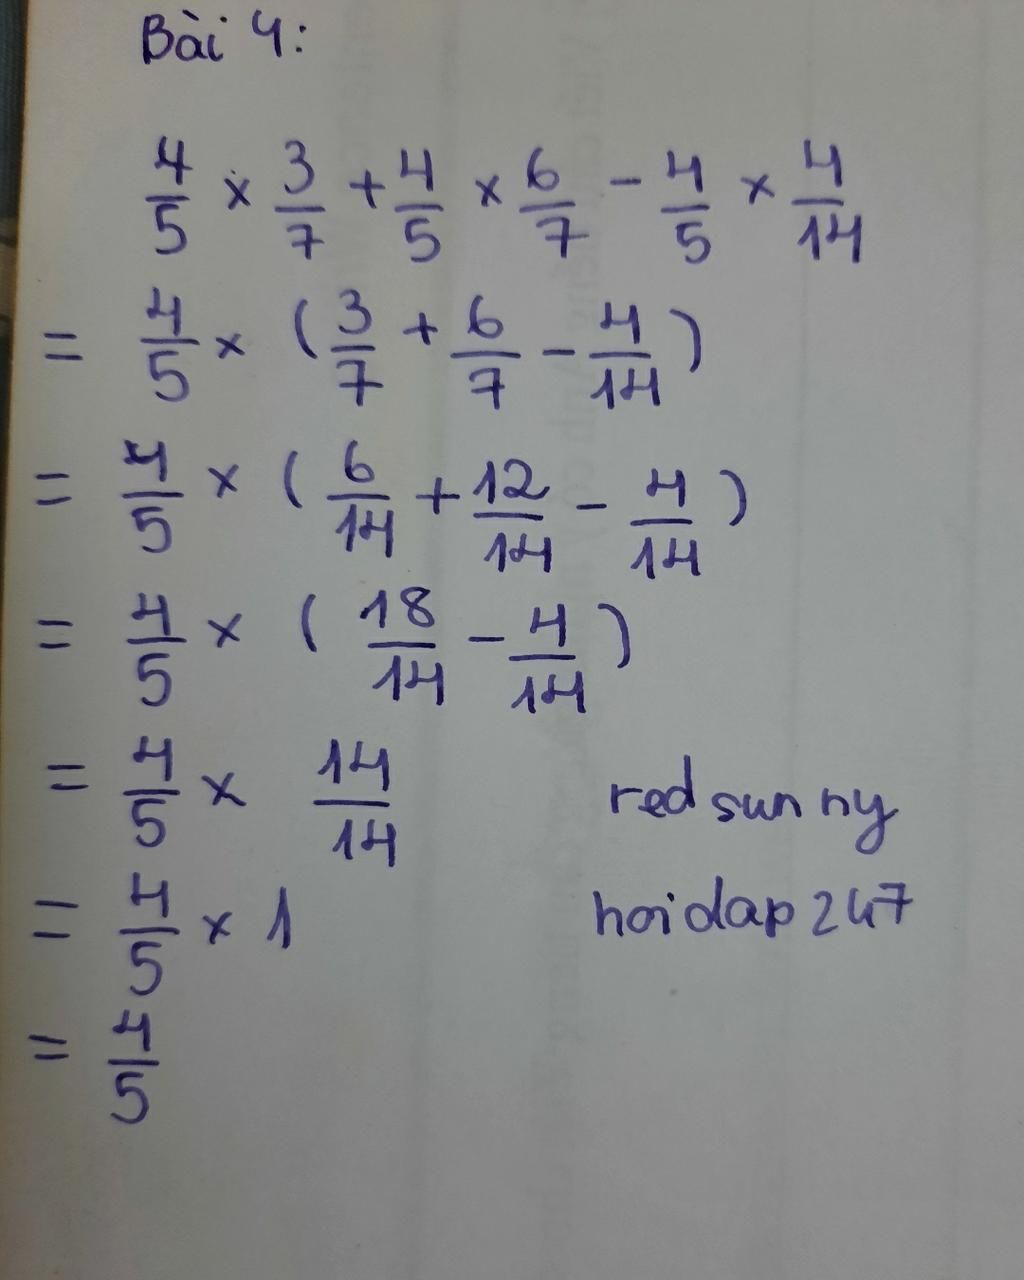 Bài 4:
4/5 × 3/7 + 4/5 × 6/7 - 4/5 × 4/14
= 4/5 × (3/7 + 6/7 - 4/14)
= 4/5 × (6/14 + 12/14 - 4/14)
= 4/5 × (18/14 - 4/14)
= 4/5 × 14/14
redsunny
= 4/5 × 1
hoidap247
= 4/5